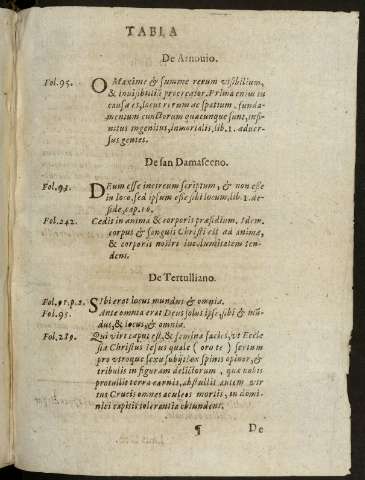 TABLA
De Arnouio.
Fol.95. O Maxime & summe rerum visibilium,
& inuisibiliũ procreator. Prima enim tu
causa es, locus rerum ac spatium, funda-
mentum cunctorum quæcunque sunt, infi-
nitus ingenitus, inmortalis, lib. 1. aduer-
sus gentes.
De san Damasceno.
Fol.94. DEum esse incircunscriptum, & non esse
in loco, sed ipsum esse sibi locum, lib. 1. de
fide, cap. 16.
Fol.242. Cedit in anima & corporis præsidium. Idem
corpus & sanguis Christi est ad animæ,
& corporis nostri incolumitatem ten-
dens.
De Tertulliano.
Fol.91.p.2. SIbi erat locus mundus & omnia.
Fol.95. Ante omnia erat Deus solus ipse, sibi & mũ-
dus, & locus, & omnia.
Fol.289. Qui viri caput est, & femina facies, vt Eccle-
siæ Christus Iesus quale ( oro te ) sertum
pro vtroque sexu subijt ex spinis opinor, &
tribulis in figuram delictorum, quæ nobis
protullit terra carnis, abstullit autem vir
tus Crucis omnes aculeos mortis, in domi-
nici capitis tolerantia obtundens.
¶ De